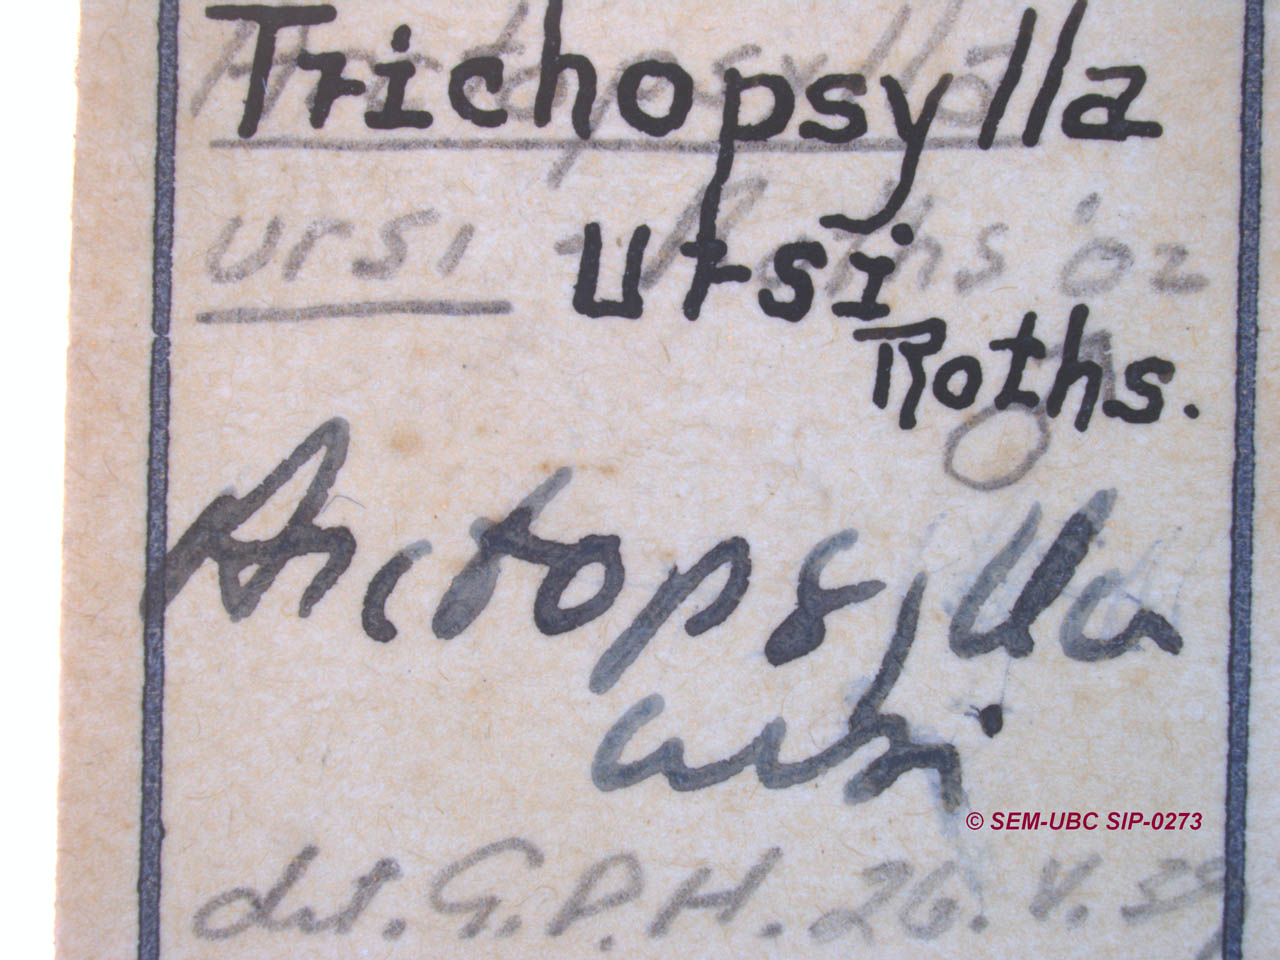 Trichopsylla
Arctopsylla
ursi
ursi Roths '02
Roths.
Arctopsylla
ursi
© SEM-UBC SIP-0273
det. G.P.H. 26. V. 39